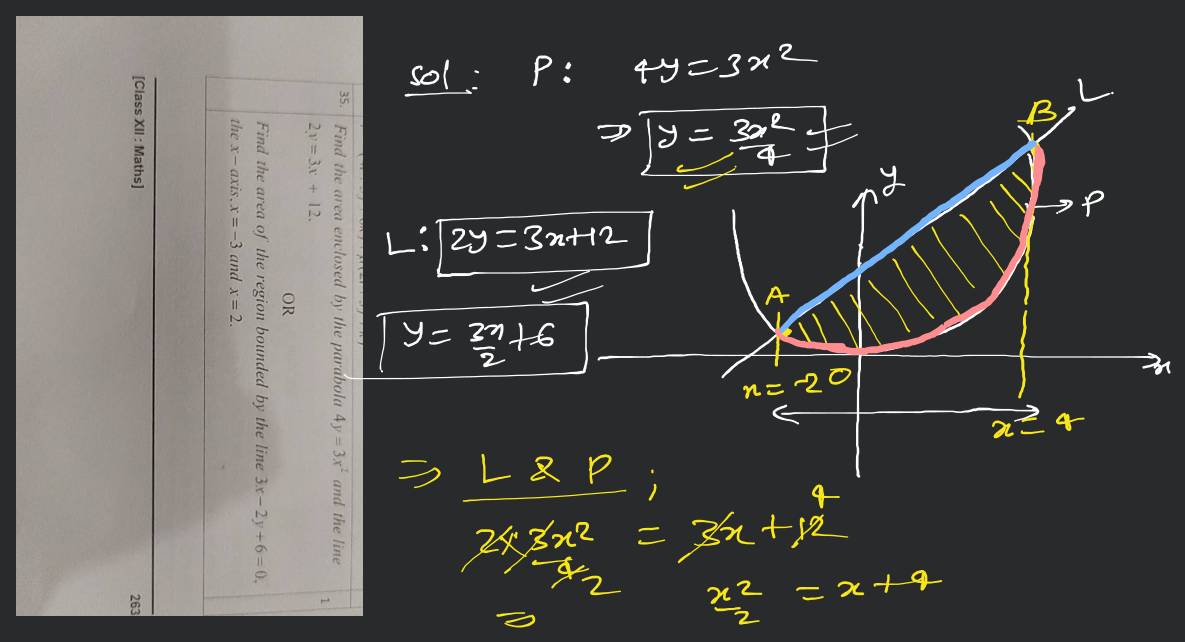 35. Find the area enclosed by the parabola 4y = 3x² and the line
2y = 3x + 12.
OR
Find the area of the region bounded by the line 3x – 2y + 6 = 0,
the x – axis, x = –3 and x = 2.
1
[Class XII : Maths]
263
sol: P: 4y = 3x²
⇒ y = 3x²/4
L: 2y = 3x+12
y = 3x/2 + 6
y
B
L
P
A
x = -2
O
x
x = 4
⇒ L & P ;
2x 3x²/4 = 3x + 12
2
4
⇒ x²/2 = x + 4